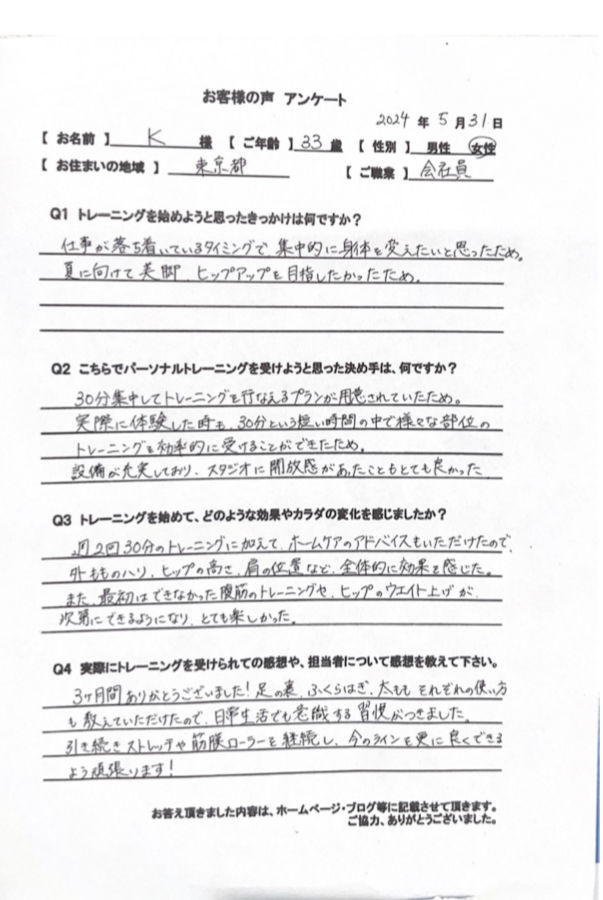 お客様の声 アンケート
2024 年 5 月 31 日
【 お名前 】 K 様 【 ご年齢 】 33 歳 【 性別 】 男性 女性
【 お住まいの地域 】 東京都 【 ご職業 】 会社員
Q1 トレーニングを始めようと思ったきっかけは何ですか？
仕事が落ち着いているタイミングで 集中的に身体を変えたいと思ったため。
夏に向けて美脚、ヒップアップを目指したかったため。
Q2 こちらでパーソナルトレーニングを受けようと思った決め手は、何ですか？
30分集中してトレーニングを行なえるプランが用意されていたため。
実際に体験した時も、30分という短い時間の中で様々な部位の
トレーニングを効率的に受けることができたため。
設備が充実しており、スタジオに開放感があったこともとても良かった
Q3 トレーニングを始めて、どのような効果やカラダの変化を感じましたか？
週2回30分のトレーニングに加えて、ホームケアのアドバイスもいただけたので、
外もものハリ、ヒップの高さ、肩の位置など、全体的に効果を感じた。
また、最初はできなかった腹筋のトレーニングや、ヒップのウエイト上げが、
次第にできるようになり、とても楽しかった。
Q4 実際にトレーニングを受けられての感想や、担当者について感想を教えて下さい。
3ヶ月間ありがとうございました！足の裏、ふくらはぎ、太もも それぞれの使い方
も教えていただけたので、日常生活でも意識する習慣がつきました。
引き続きストレッチや筋膜ローラーを継続し、今のラインを更に良くできる
よう頑張ります！
お答え頂きました内容は、ホームページ・ブログ等に記載させて頂きます。
ご協力、ありがとうございました。